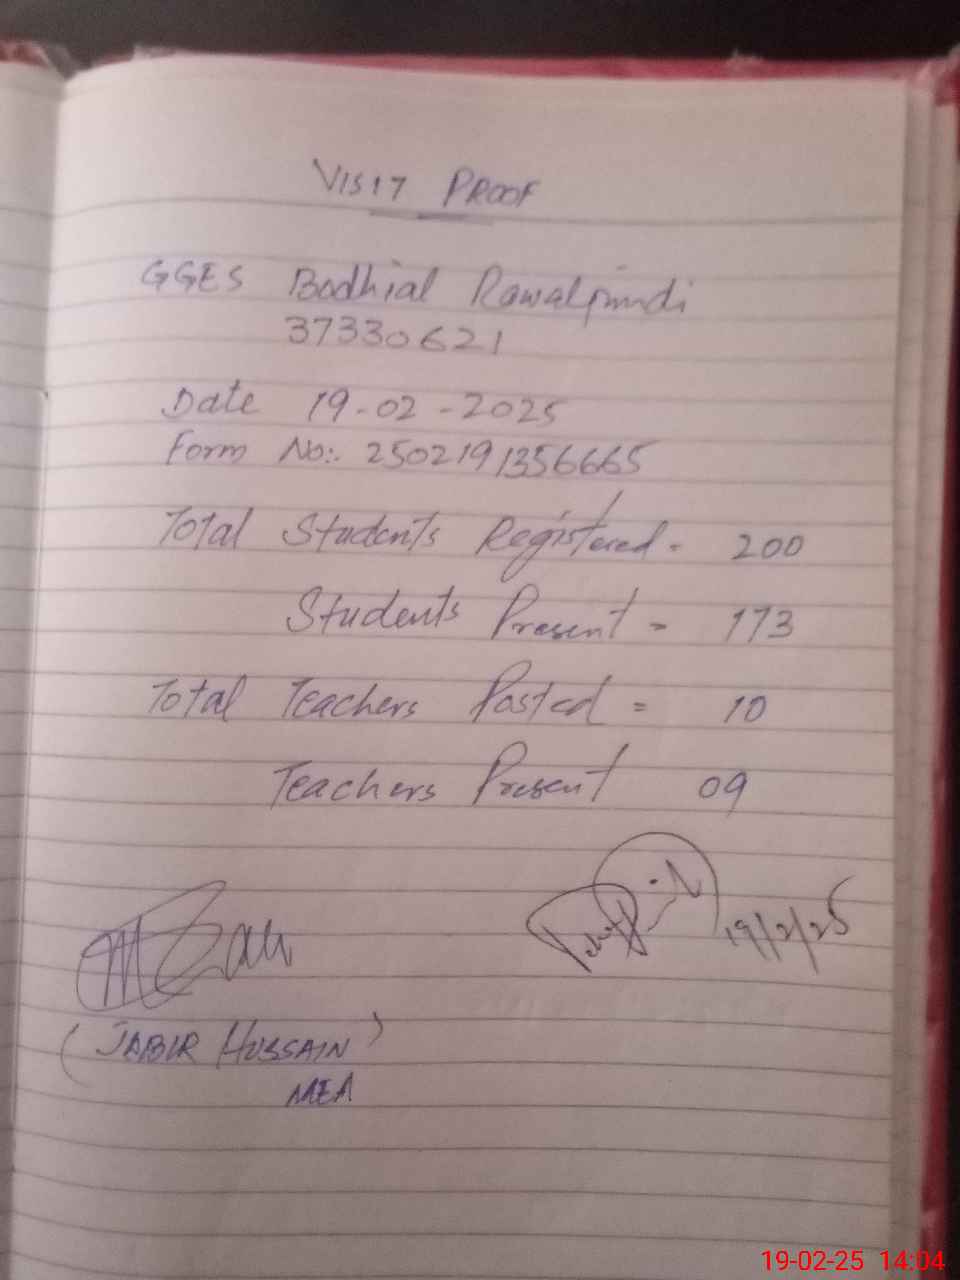 VISIT PROOF
GGES Bodhial Rawalpindi
37330621
Date 19-02-2025
Form No:. 2502191356665
Total Students Registered = 200
Students Present = 173
Total Teachers Posted = 10
Teachers Present 09
19/2/25
(JABIR HUSSAIN)
MEA
19-02-25 14:04